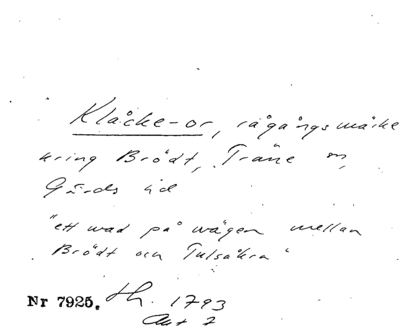 Klåcke-or, rågångsmärke
kring Brödt, Träne o,
Gärds hd
"ett wad på wägen mellan
Brödt och Tulsåkra"
Nr 7925. Lh. 1793
Akt 7